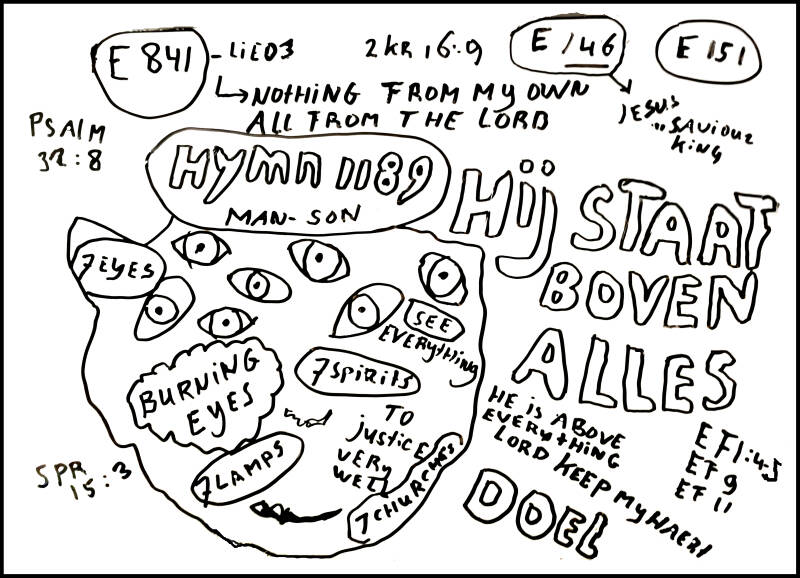 E 841 - LiED3
2kR 16:9
E 146
E 151
NOTHING FROM MY OWN
ALL FROM THE LORD
JESUS
SAVIOUR
KING
PSAlM
32:8
HYMN 1189
MAN-SON
HIJ STAAT
BOVEN
ALLES
7 EYES
SEE
EVERYTHING
7 SPIRITS
BURNING
EYES
TO
justicE
VERY
WELL
7 LAMPS
7 CHURCHES
SPR
15:3
HE IS ABOVE
EVERYTHING
LORD KEEP MY HAERT
EF1:4-5
EF 9
EF 11
DOEL